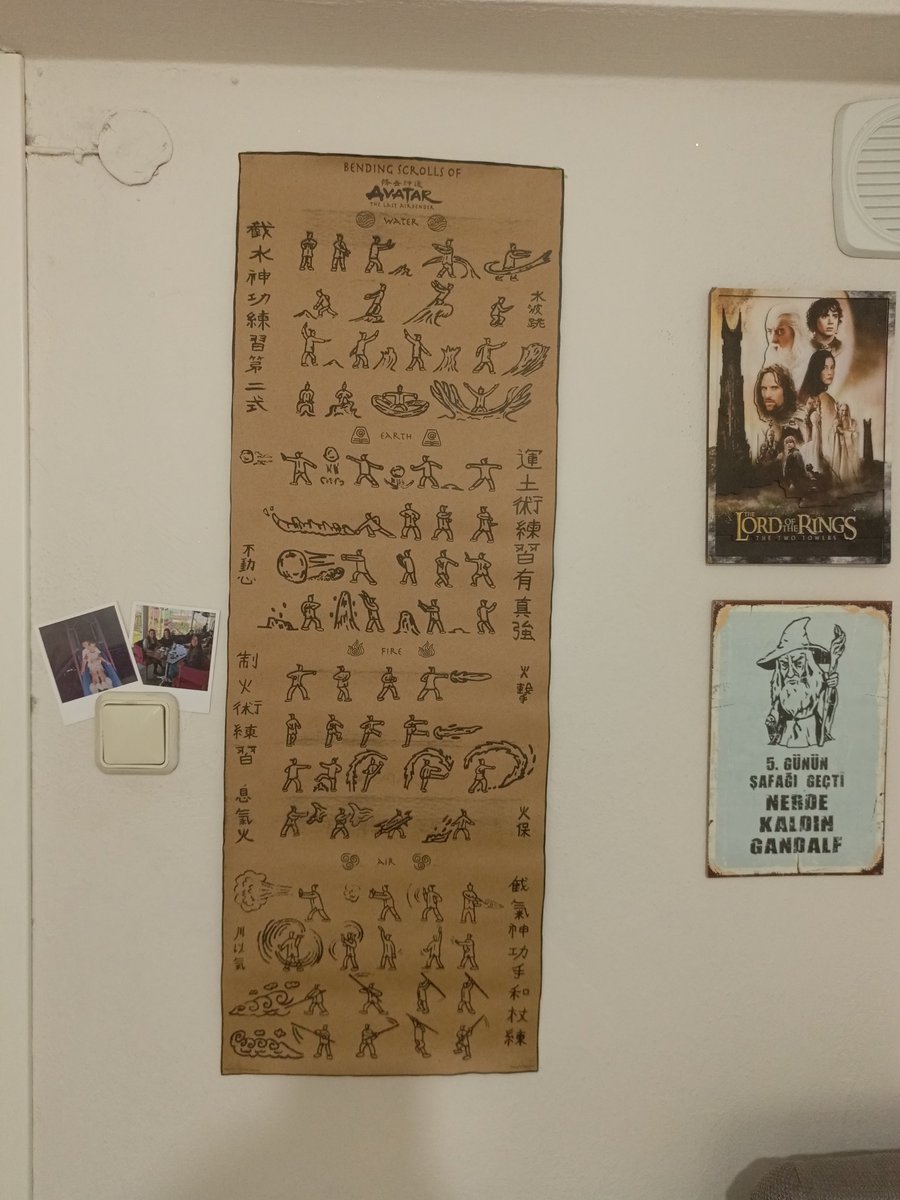 BENDING SCROLLS OF
降去神通
AVATAR
THE LAST AIRBENDER
WATER
截水神功練習第二式
水波跳
EARTH
運土術練習有真強
不動心
FIRE
制火術練習
火擊
息氣火
火保
AIR
截氣神功手和杖練
川以氣
THE
LORD OF THE RINGS
THE TWO TOWERS
5. GÜNÜN
ŞAFAĞI GEÇTİ
NERDE
KALDIN
GANDALF